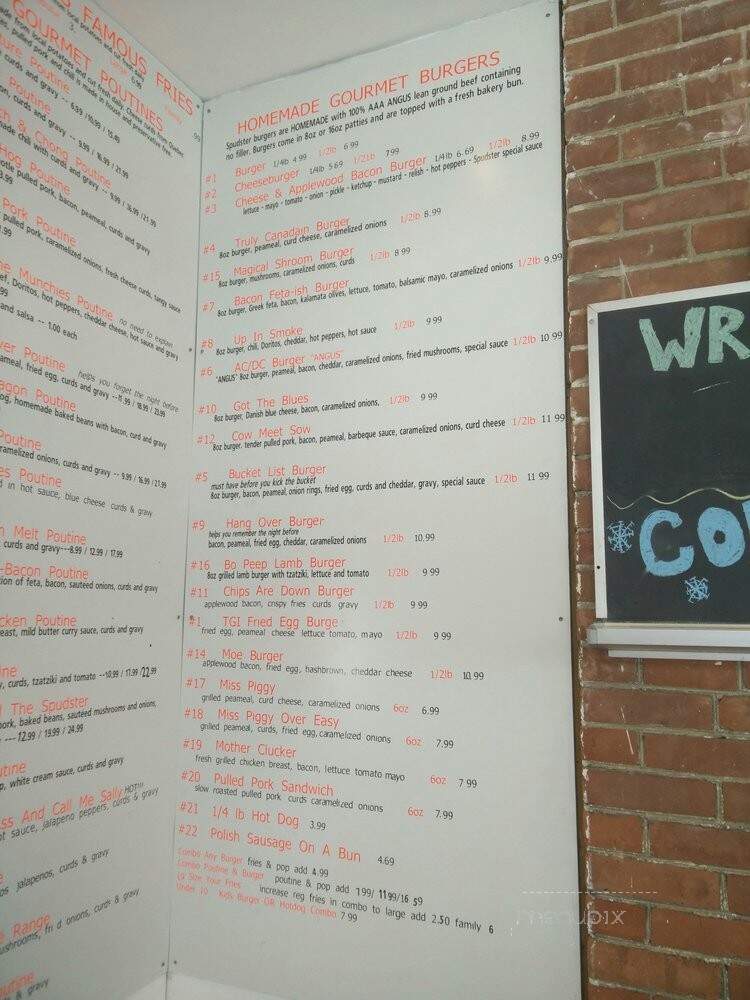 FAMOUS FRIES
GOURMET POUTINES
Poutine
curds and gravy -- 6.99 / 10.99 / 15.49
Poutine
on, curds and gravy -- 9.99 / 16.99 / 21.99
& Chong Poutine
made chili with curds and gravy -- 9.99 / 16.99 / 21.99
Hog Poutine
pulled pork, bacon, peameal, curds and gravy
Pork Poutine
pulled pork, caramelized onions, fresh cheese curds, tangy sauce
Munchies Poutine no need to explain
Doritos, hot peppers, cheddar cheese, hot sauce and gravy
and salsa -- 1.00 each
Poutine helps you forget the night before
fried egg, curds and gravy
Poutine
homemade baked beans with bacon, curd and gravy
Poutine
caramelized onions, curds and gravy -- 9.99 / 16.99 / 21.99
Poutine
in hot sauce, blue cheese curds & gravy
Melt Poutine
curds and gravy---8.99 / 12.99 / 17.99
-Bacon Poutine
of feta, bacon, sauteed onions, curds and gravy
Poutine
mild butter curry sauce, curds and gravy
curds, tzatziki and tomato --10.99 / 17.99 /22.99
The Spudster
pork, baked beans, sauteed mushrooms and onions,
--- 12.99 / 19.99 / 24.99
white cream sauce, curds and gravy
And Call Me Sally HOT!!!
sauce, jalapeno peppers, curds & gravy
jalapenos, curds & gravy
Range
onions, curds & gravy
& gravy
HOMEMADE GOURMET BURGERS
Spudster burgers are HOMEMADE with 100% AAA ANGUS lean ground beef containing
no filler. Burgers come in 8oz or 16oz patties and are topped with a fresh bakery bun.
#1 Burger 1/4lb 4.99 1/2lb 6.99
#2 Cheeseburger 1/4lb 5.69 1/2lb 7.99
#3 Cheese & Applewood Bacon Burger 1/4lb 6.69 1/2lb 8.99
lettuce - mayo - tomato - onion - pickle - ketchup - mustard - relish - hot peppers - Spudster special sauce
#4 Truly Canadain Burger
8oz burger, peameal, curd cheese, caramelized onions 1/2lb 8.99
#15 Magical Shroom Burger
8oz burger, mushrooms, caramelized onions, curds 1/2lb 8 99
#7 Bacon Feta-ish Burger
8oz burger, Greek feta, bacon, kalamata olives, lettuce, tomato, balsamic mayo, caramelized onions 1/2lb 9.99
#8 Up In Smoke
8oz burger, chili, Doritos, cheddar, hot peppers, hot sauce 1/2lb 9 99
#6 AC/DC Burger "ANGUS"
"ANGUS" 8oz burger, peameal, bacon, cheddar, caramelized onions, fried mushrooms, special sauce 1/2lb 10 99
#10 Got The Blues
8oz burger, Danish blue cheese, bacon, caramelized onions, 1/2lb 9 99
#12 Cow Meet Sow
8oz burger, tender pulled pork, bacon, peameal, barbeque sauce, caramelized onions, curd cheese 1/2lb 11 99
#5 Bucket List Burger
must have before you kick the bucket
8oz burger, bacon, peameal,onion rings, fried egg, curds and cheddar, gravy, special sauce 1/2lb 11 99
#9 Hang Over Burger
helps you remember the night before
bacon, peameal, fried egg, cheddar, caramelized onions 1/2lb 10.99
#16 Bo Peep Lamb Burger
8oz grilled lamb burger with tzatziki, lettuce and tomato 1/2lb 9 99
#11 Chips Are Down Burger
applewood bacon, crispy fries curds gravy 1/2lb 9 99
#1 TGI Fried Egg Burge
fried egg, peameal cheese lettuce tomato, mayo 1/2lb 9 99
#14 Moe Burger
applewood bacon, fried egg, hashbrown, cheddar cheese 1/2lb 10.99
#17 Miss Piggy
grilled peameal, curd cheese, caramelized onions 6oz 6.99
#18 Miss Piggy Over Easy
grilled peameal, curds, fried egg,caramelized onions 6oz 7.99
#19 Mother Clucker
fresh grilled chicken breast, bacon, lettuce tomato mayo 6oz 7 99
#20 Pulled Pork Sandwich
slow roasted pulled pork curds caramelized onions 6oz 7.99
#21 1/4 lb Hot Dog 3.99
#22 Polish Sausage On A Bun 4.69
Combo Any Burger fries & pop add 4.99
Combo Poutine & Burger poutine & pop add 7.99/ 11 99/16 59
Size Your Fries increase reg fries in combo to large add 2.50 family 6
Under 10 Kids Burger OR Hotdog Combo 7 99
WR
CO
menupix